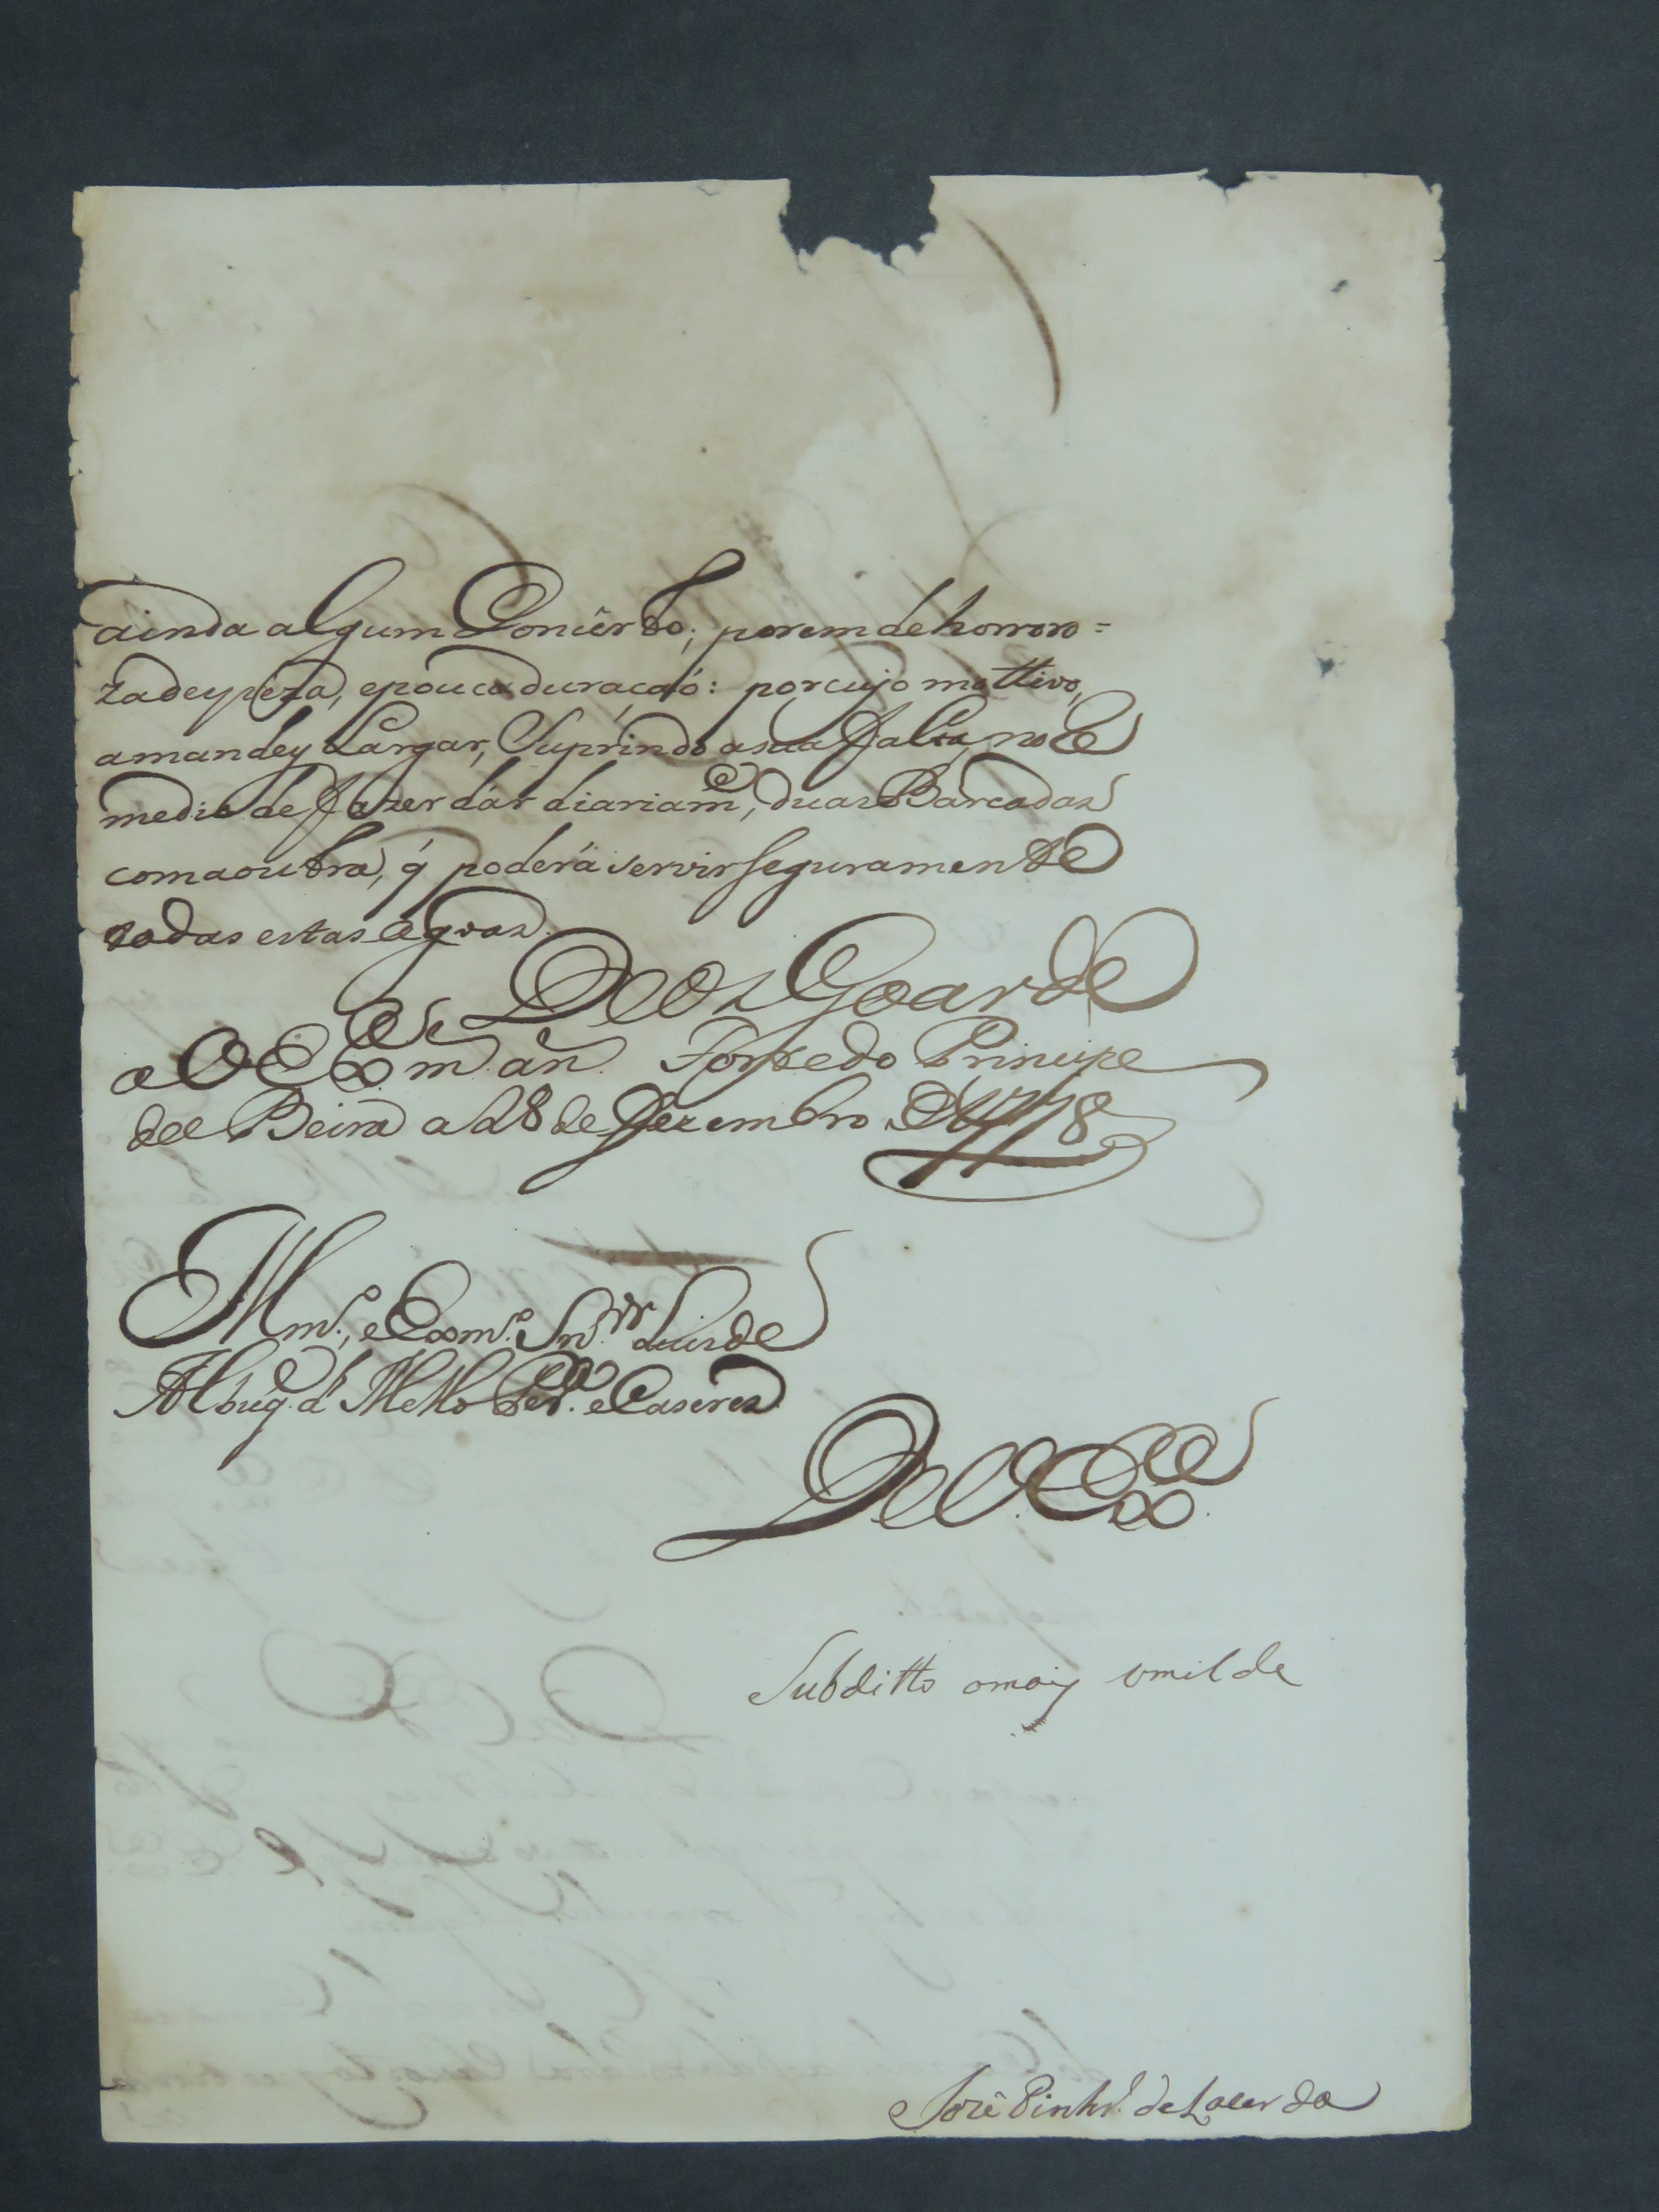 ainda algum Concêrto; porem de horroro=
za deypeza, epouca duraçaó: porcujo mottivo,
amandey Largar, Suprindo asua falta, no
medio de fazer dár diariam.e, duas Barcadas
comaoutra, q̃ poderá servir seguramente
todas estas agoas.
Deos Goarde
a V. Ex.ca m. an. Forte do Principe
da Beira a 28 de Dezembro de 1778
Illm.o, e Exm.o Snr. Luis de
Albuq.e d' Mello Per.a e Caseres
De V. Ex.ca
Subditto omaiz umilde
Jozê Pinhr.o de Lacerda